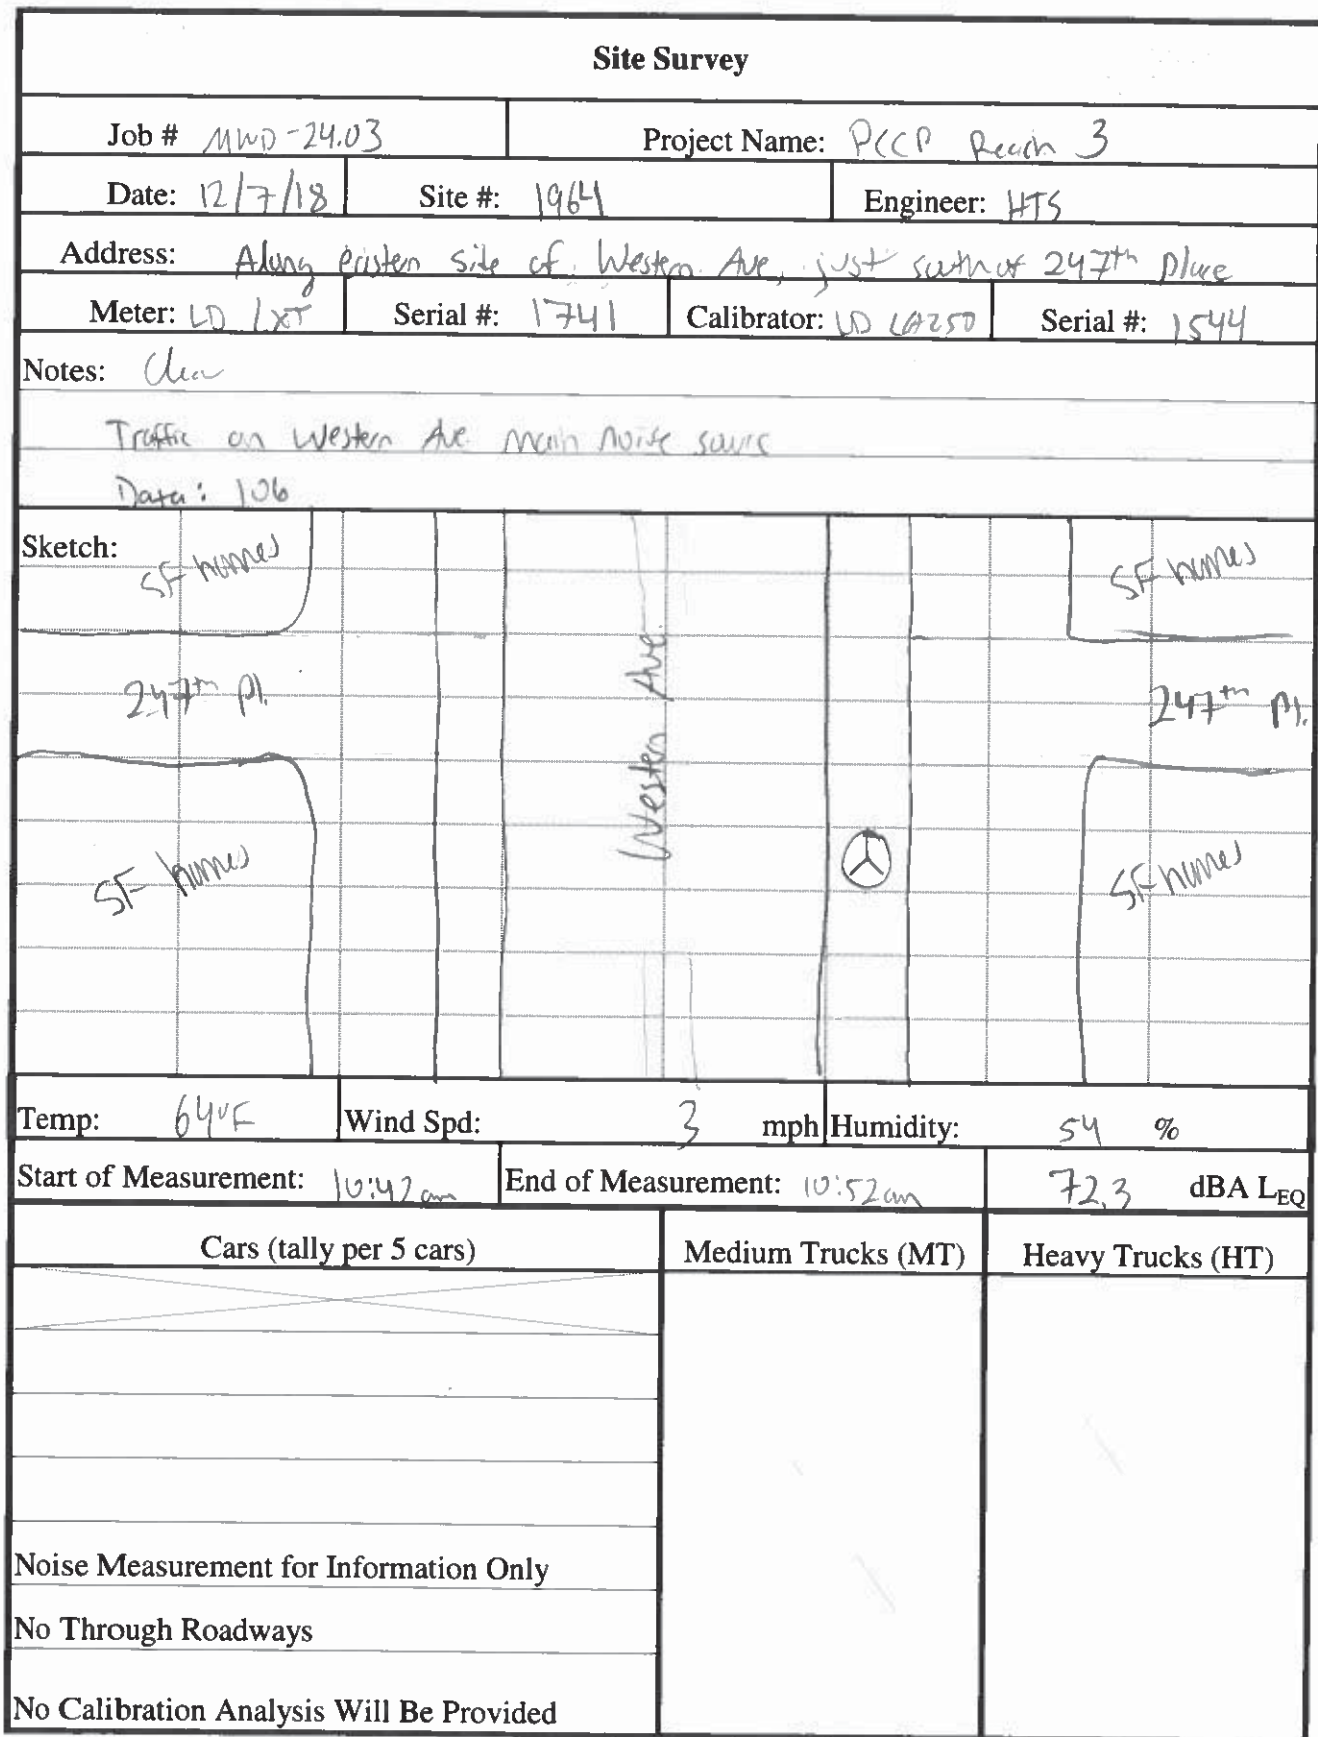 Site Survey
Job # MWD-24.03 Project Name: PCCP Reach 3
Date: 12/7/18 Site #: 1964 Engineer: HTS
Address: Along eastern side of Western Ave, just south of 247th Place
Meter: LD LXT Serial #: 1741 Calibrator: LD CA250 Serial #: 1544
Notes: Clear
Traffic on Western Ave main noise source
Data: 106
Sketch:
SF homes SF homes
247th Pl. Western Ave. 247th Pl.
SF homes SF homes
Temp: 64°F Wind Spd: 3 mph Humidity: 54 %
Start of Measurement: 10:42am End of Measurement: 10:52am 72.3 dBA LEQ
Cars (tally per 5 cars) Medium Trucks (MT) Heavy Trucks (HT)
Noise Measurement for Information Only
No Through Roadways
No Calibration Analysis Will Be Provided